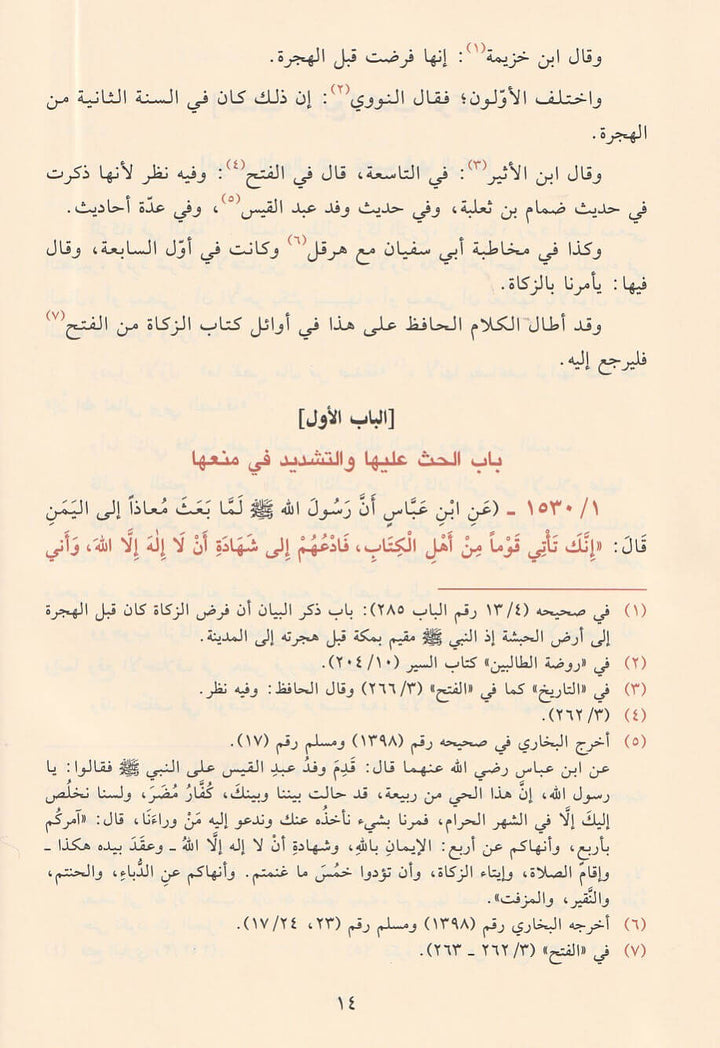 وقال ابن خزيمة(١): إنها فرضت قبل الهجرة.
واختلف الأوّلون؛ فقال النووي(٢): إن ذلك كان في السنة الثانية من
الهجرة.
وقال ابن الأثير(٣): في التاسعة، قال في الفتح(٤): وفيه نظر لأنها ذكرت
في حديث ضمام بن ثعلبة، وفي حديث وفد عبد القيس(٥)، وفي عدّة أحاديث.
وكذا في مخاطبة أبي سفيان مع هرقل(٦) وكانت في أوّل السابعة، وقال
فيها: يأمرنا بالزكاة.
وقد أطال الكلام الحافظ على هذا في أوائل كتاب الزكاة من الفتح(٧)
فليرجع إليه.
[الباب الأول]
باب الحث عليها والتشديد في منعها
١/ ١٥٣٠ ـ (عَنِ ابْنِ عَبَّاسٍ أَنَّ رَسُولَ الله ﷺ لَمَّا بَعَثَ مُعاذاً إلى اليَمَنِ
قَالَ: «إِنَّكَ تَأْتِي قَوْماً مِنْ أَهْلِ الْكِتَابِ، فَادْعُهُمْ إِلى شَهَادَةِ أَنْ لَا إِلٰهَ إِلَّا اللهَ، وَأَني
(١) في صحيحه (٤/ ١٣ رقم الباب ٢٨٥): باب ذكر البيان أن فرض الزكاة كان قبل الهجرة
إلى أرض الحبشة إذ النبي ﷺ مقيم بمكة قبل هجرته إلى المدينة.
(٢) في «روضة الطالبين» كتاب السير (١٠/ ٢٠٤).
(٣) في «التاريخ» كما في «الفتح» (٣/ ٢٦٦) وقال الحافظ: وفيه نظر.
(٤) (٣/ ٢٦٢).
(٥) أخرج البخاري في صحيحه رقم (١٣٩٨) ومسلم رقم (١٧).
عن ابن عباس رضي الله عنهما قال: قَدِمَ وفدُ عبدِ القيس على النبي ﷺ فقالوا: يا
رسول الله، إنَّ هذا الحي من ربيعة، قد حالت بيننا وبينكَ، كُفَّارُ مُضَرَ، ولسنا نخلُص
إليكَ إلَّا في الشهر الحرام، فمرنا بشيء نأخذُه عنك وندعو إليه مَنْ وراءَنَا، قال: «آمركُم
بأربعٍ، وأنهاكم عن أربع: الإيمانِ باللهِ، وشهادةِ أنْ لا إله إلَّا اللهُ ـ وعقَدَ بيده هكذا ـ
وإقامِ الصلاة، وإيتاء الزكاة، وأن تؤدوا خمُسَ ما غنمتم. وأنهاكم عنِ الدُّباءِ، والحنتم،
والنَّقير، والمزفت».
(٦) أخرجه البخاري رقم (١٣٩٨) ومسلم رقم (٢٣، ٢٤/ ١٧).
(٧) في «الفتح» (٣/ ٢٦٢ ـ ٢٦٣).
١٤